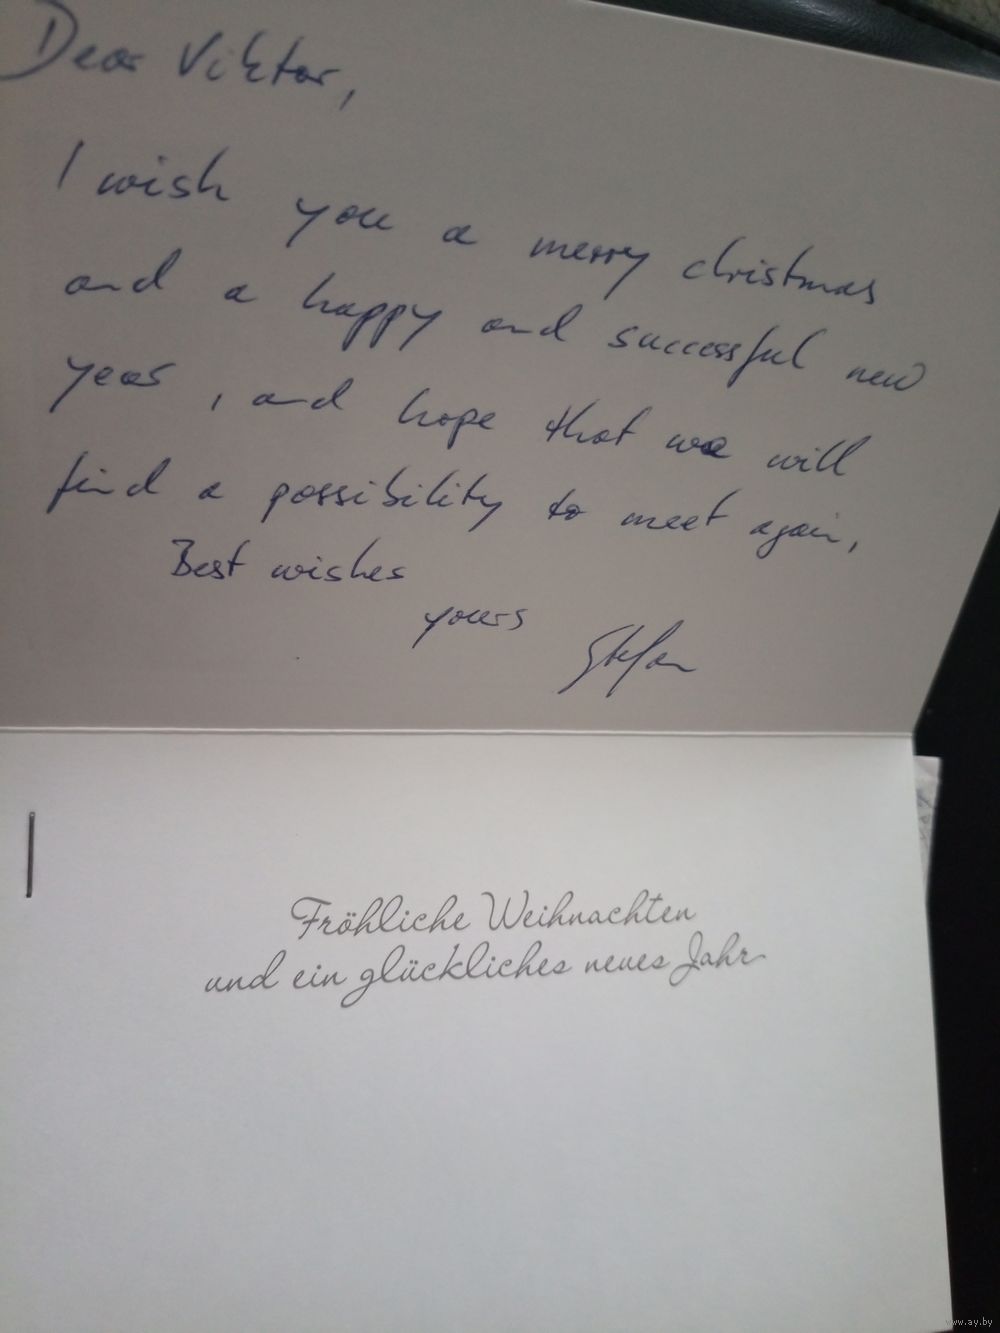 Dear Viktor,
I wish you a merry christmas
and a happy and successful new
year, and hope that we will
find a possibility to meet again,
Best wishes
yours
Stefan
Fröhliche Weihnachten
und ein glückliches neues Jahr
www.ay.by